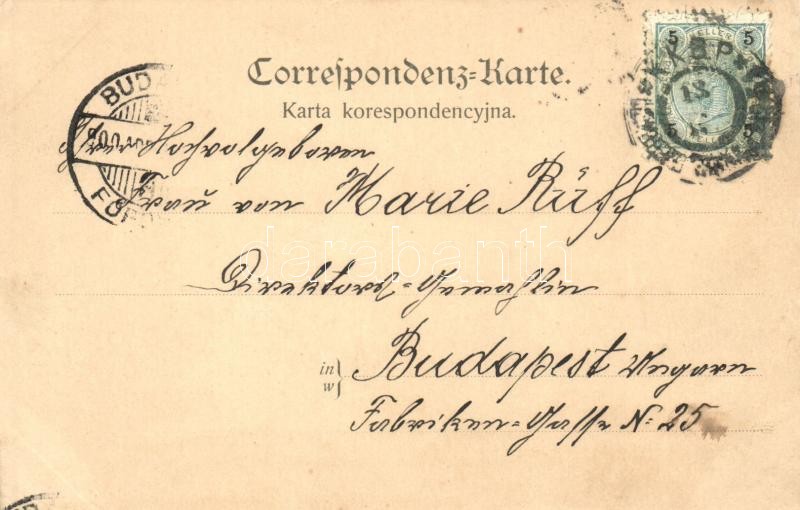 Correspondenz-Karte.
Karta korespondencyjna.
Ihrer Hochwolgeboren
Frau von Marie Rüff
Direktors-Gemahlin
in
w
Budapest Ungarn
Fabriken-Gasse N: 25
5 HELLER 5
5 5
BUDA
darabanth